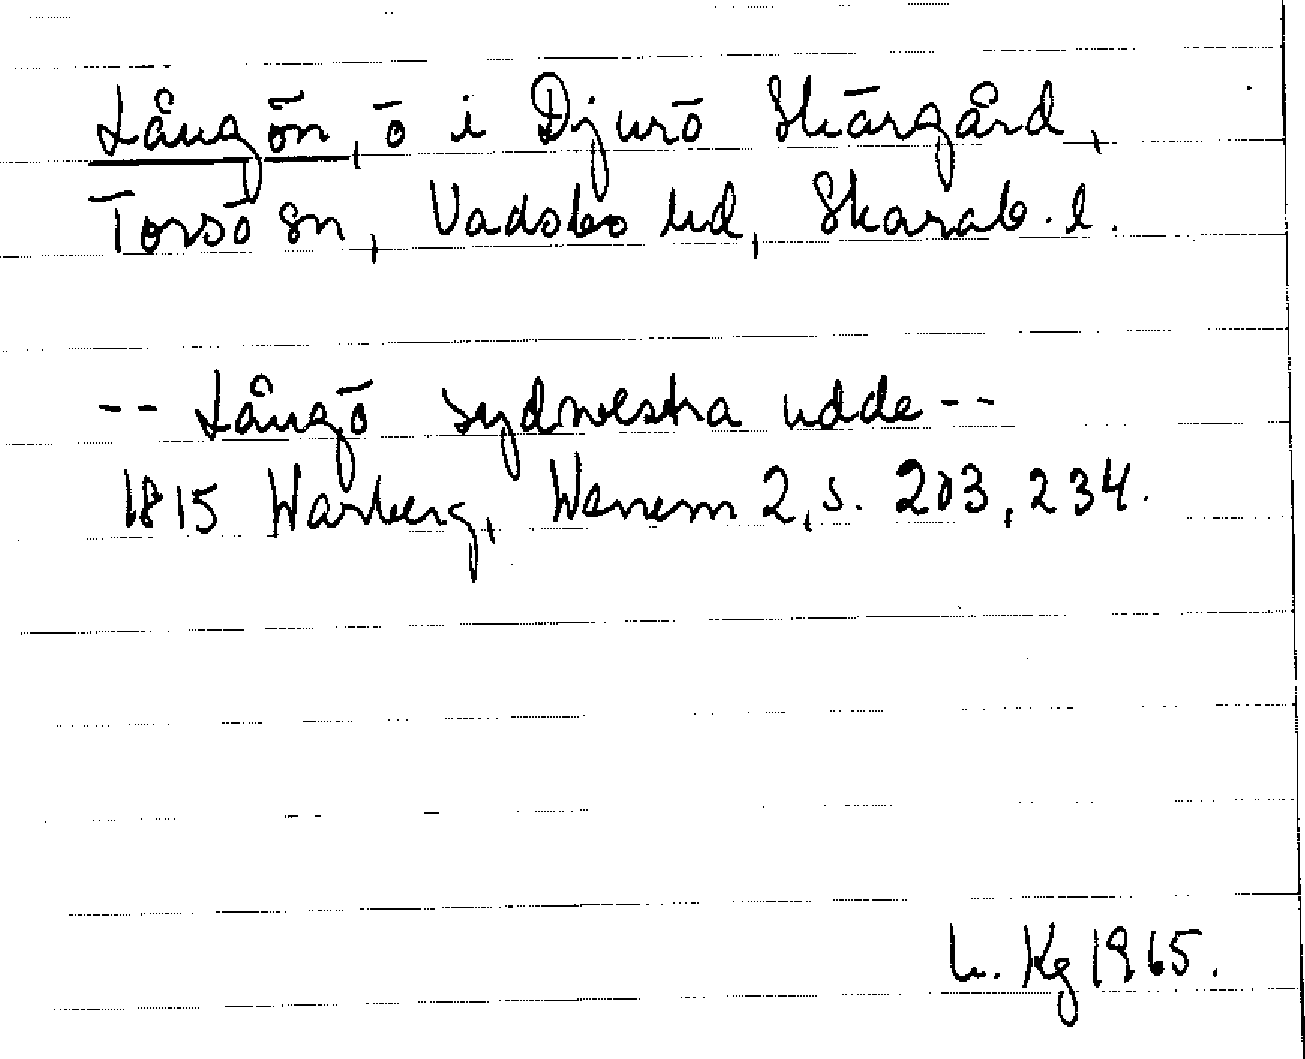 Långön, ö i Djurö Skärgård,
Torsö sn, Vadsbo hd, Skarab. l.
-- Långö sydwestra udde --
1815 Warberg, Wenern 2, s. 203, 234.
L. Kg 1965.